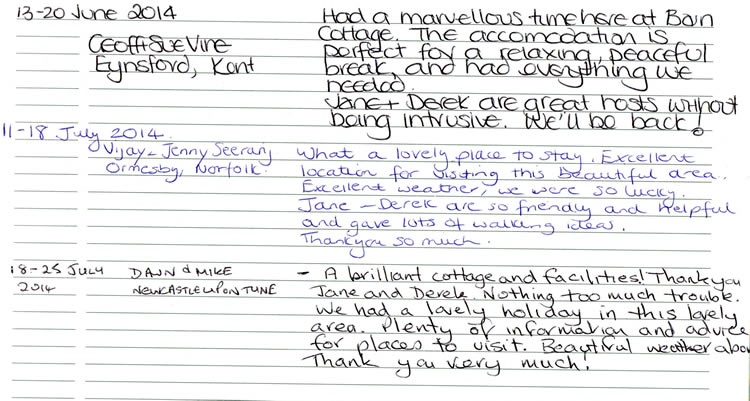 13-20 June 2014
Geoff + Sue Vine
Eynsford, Kent
Had a marvellous time here at Barn
Cottage. The accomodation is
perfect for a relaxing, peaceful
break, and had everything we
needed.
Jane + Derek are great hosts without
being intrusive. We'll be back!
11-18 July 2014.
Vijay - Jenny
Ormesby, Norfolk.
What a lovely place to stay. Excellent
location for visiting this beautiful area.
Excellent weather, we were so lucky.
Jane - Derek are so friendly and helpful
and gave lots of walking ideas.
Thankyou so much.
18-25 July
2014
DAWN & MIKE
NEWCASTLE UPON TYNE
- A brilliant cottage and facilities! Thank you
Jane and Derek. Nothing too much trouble.
We had a lovely holiday in this lovely
area. Plenty of information and advice
for places to visit. Beautiful weather
Thank you very much!